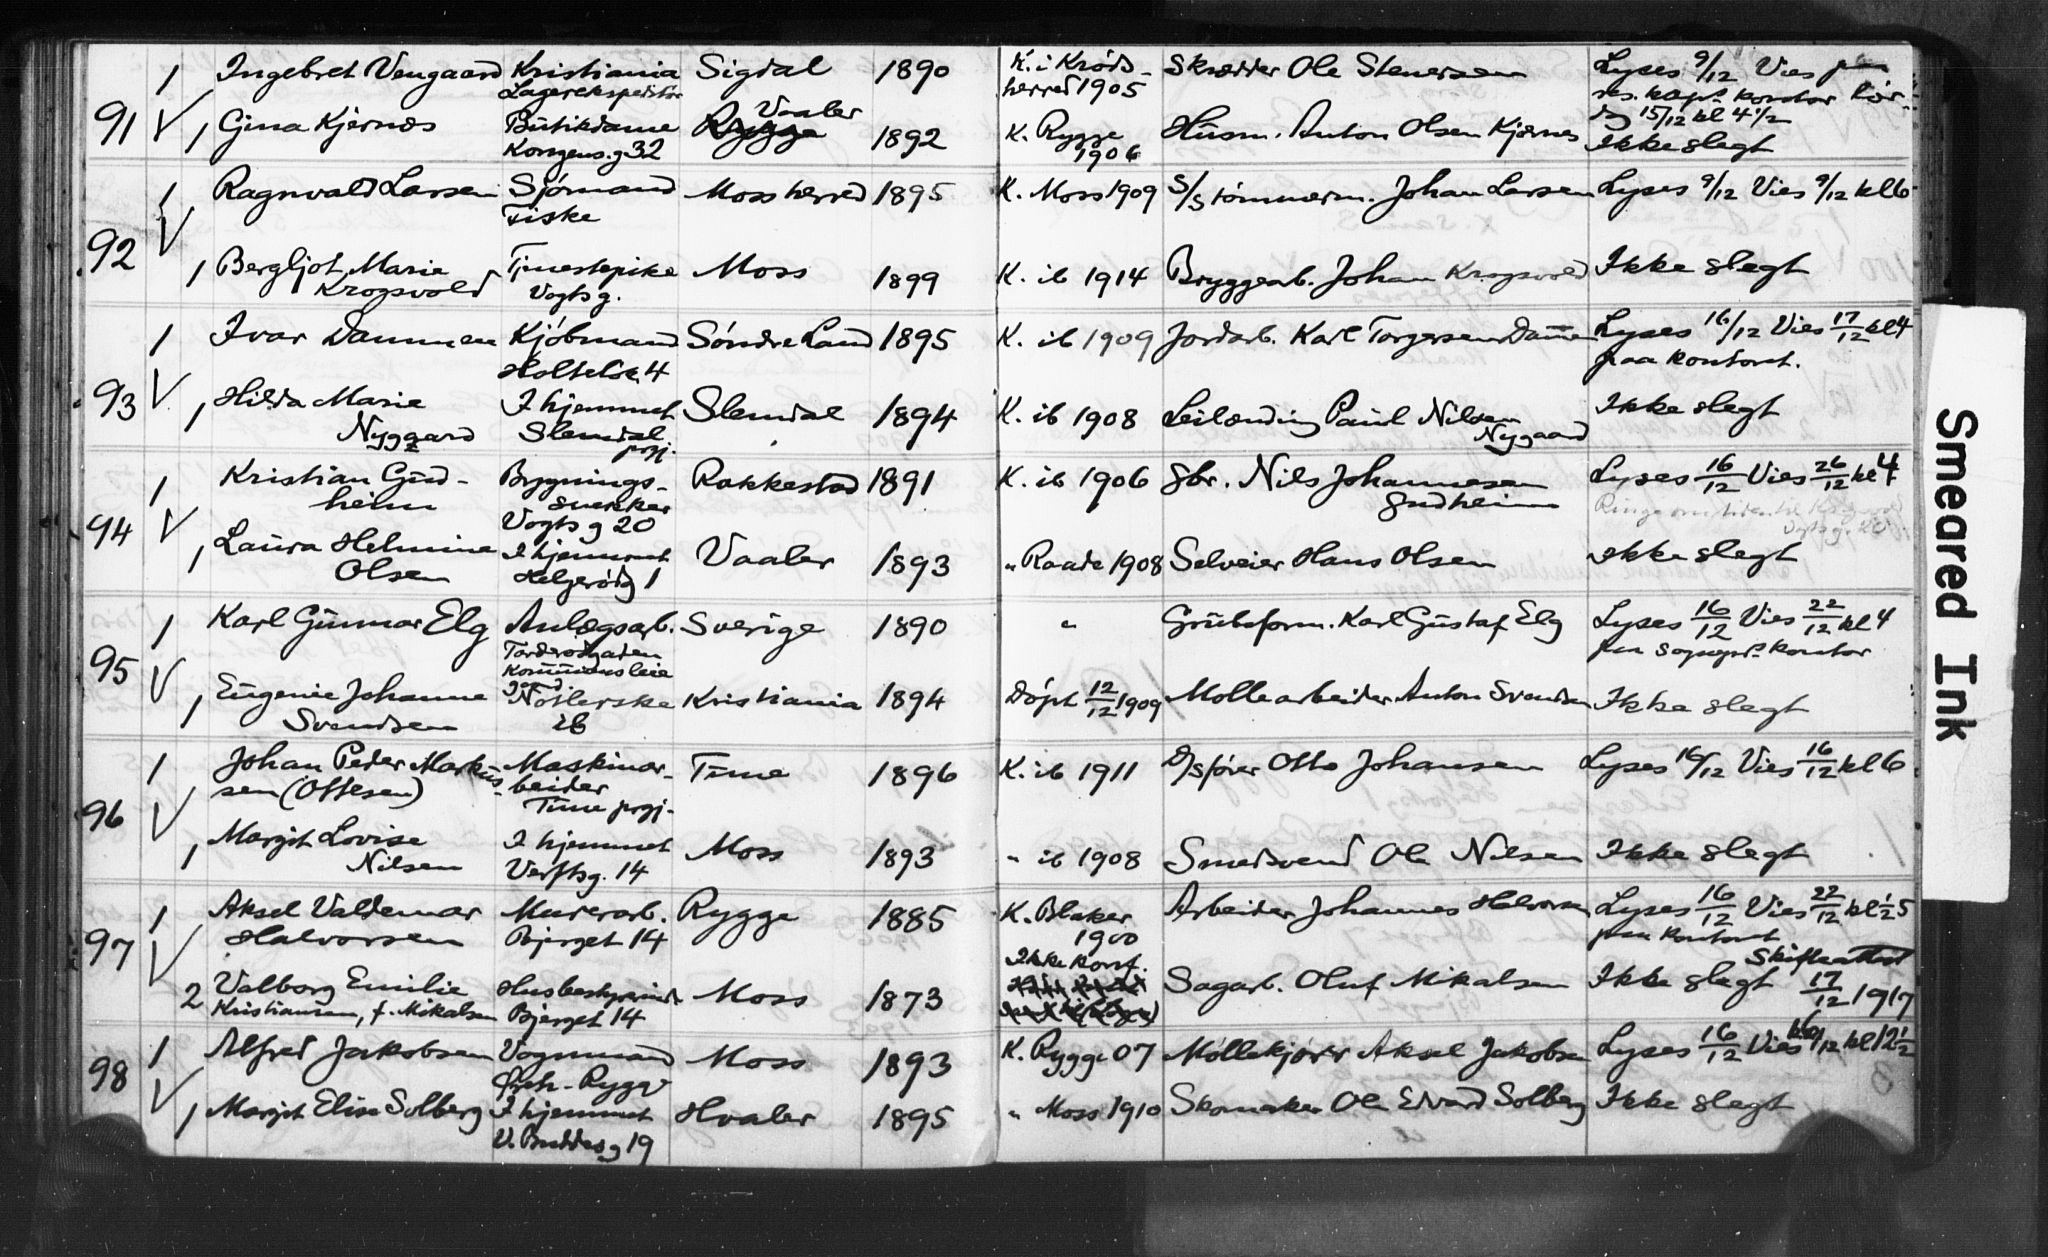 91 1 Ingebret Vengaard Kristiania Sigdal 1890 K. i Krøds- Skrædder Ole Stenersen Lyses 9/12 Vies paa
Lagerekspeditør herred 1905 res. kap.s kontor Lør-
Vaaler dag 15/12 kl 4 1/2
1 Gina Kjernes Butikdame Rygge 1892 K. Rygge Husm. Anton Olsen Kjærnes Ikke slegt
Kongens.g 32 1906
92 1 Ragnvald Larsen Sjømand Moss herred 1895 K. Moss 1909 S/s tømmerm. Johan Larsen Lyses 9/12 Vies 9/12 kl 6
Fiske
1 Bergljot Marie Tjenestepike Moss 1899 K. ib 1914 Bryggearb. Johan Krogsvold Ikke slegt
Krogsvold Vogts g.
93 1 Ivar Dammen Kjøbmand Søndre Land 1895 K. ib 1909 Jordarb. Karl Torgersen Dammen Lyses 16/12 Vies 17/12 kl 4
Holtelsk. 4 paa kontoret.
1 Hilda Marie I hjemmet Slemdal 1894 K. ib 1908 Leilænding Paul Nilsen Ikke slegt
Nyggard Slemdal Nygaard
prgj.
94 1 Kristian Gud- Bygnings- Rakkestad 1891 K. ib 1906 Gbr. Nils Johannesen Lyses 16/12 Vies 26/12 kl 4
heim snekker Gudheim
Vogts g 20 Vogts g. 20
1 Laura Helmine I hjemmet Vaaler 1893 " Raade 1908 Selveier Hans Olsen Ikke slegt
Olsen Helgerødg 1
95 1 Karl Gunnar Elg Anlægsarb. Sverige 1890 " Grubeform. Karl Gustaf Elg Lyses 16/12 Vies 22/12 kl 4
Tørderødgaden paa sognepr.s kontor
Kommunens leie
gaard
1 Eugenie Johanne Nøtlerske Kristiania 1894 Døpt 12/12 1909 Møllearbeider Anton Svendsen Ikke slegt
Svendsen ib
96 1 Johan Peder Markus- Maskinar- Tune 1896 K. ib 1911 S/sfører Otto Johansen Lyses 16/12 Vies 16/12 kl 6
sen (Ottesen) beider
Tune prgj.
1 Margit Lovise I hjemmet Moss 1893 " ib 1908 Smedsvend Ole Nilsen Ikke slegt
Nilsen Verftsg. 14
97 1 Aksel Valdemar Murerarb. Rygge 1885 K. Blaker Arbeider Johannes Halvorsen Lyses 16/12 Vies 22/12 kl 1/2 5
Halvorsen Bjerget 14 1900 paa kontoret
Ikke konf. Skifteattest
2 Valborg Emilie Husbestyrerinde Moss 1873 Sagarb. Oluf Mikalsen Ikke slegt 17/12 1917
Kristiansen, f. Mikalsen Bjerget 14
98 1 Alfred Jakobsen Vognmand Moss 1893 K. Rygge 07 Møllekjører Aksel Jakobsen Lyses 16/12 Vies 16/12 kl 12 1/2
Rygge
1 Margit Elise Solberg I hjemmet Hvaler 1895 " Moss 1910 Skomaker Ole Edvard Solberg Ikke slegt
V. Buddes g 19
Smeared Ink